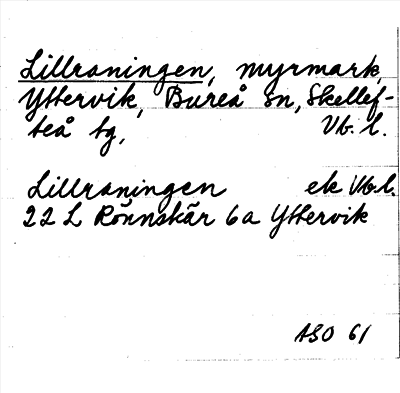 Lillraningen, myrmark,
Yttervik, Bureå sn, Skellef-
teå tg, Vb. l.
Lillraningen ek Vb. l.
22 L Rönnskär 6a Yttervik
ASO 61